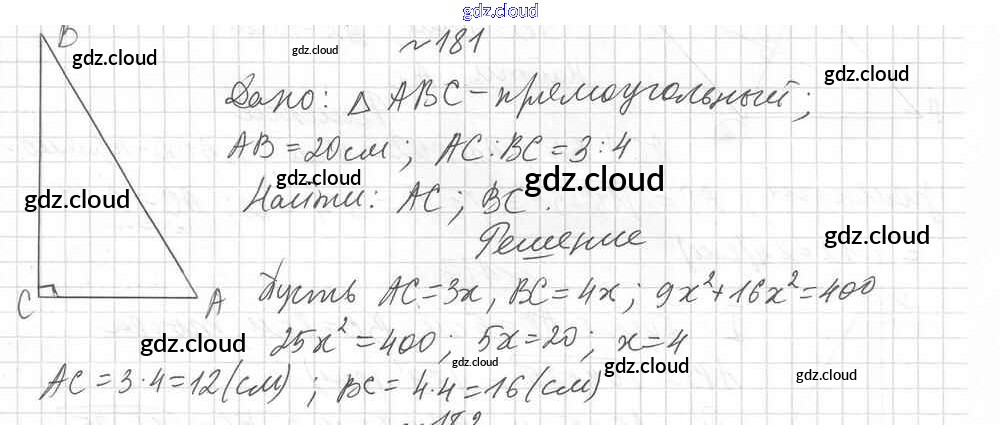 gdz.cloud
B gdz.cloud gdz.cloud ~181 gdz.cloud
Дано: △ ABC - прямоугольный;
AB = 20 см; AC : BC = 3 : 4
gdz.cloud gdz.cloud
Найти: AC; BC.
gdz.cloud gdz.cloud
Решение
C A Пусть AC = 3x, BC = 4x; 9x² + 16x² = 400
gdz.cloud 25x² = 400; 5x = 20; x = 4
gdz.cloud gdz.cloud gdz.cloud
AC = 3·4 = 12 (см); BC = 4·4 = 16 (см)
~182